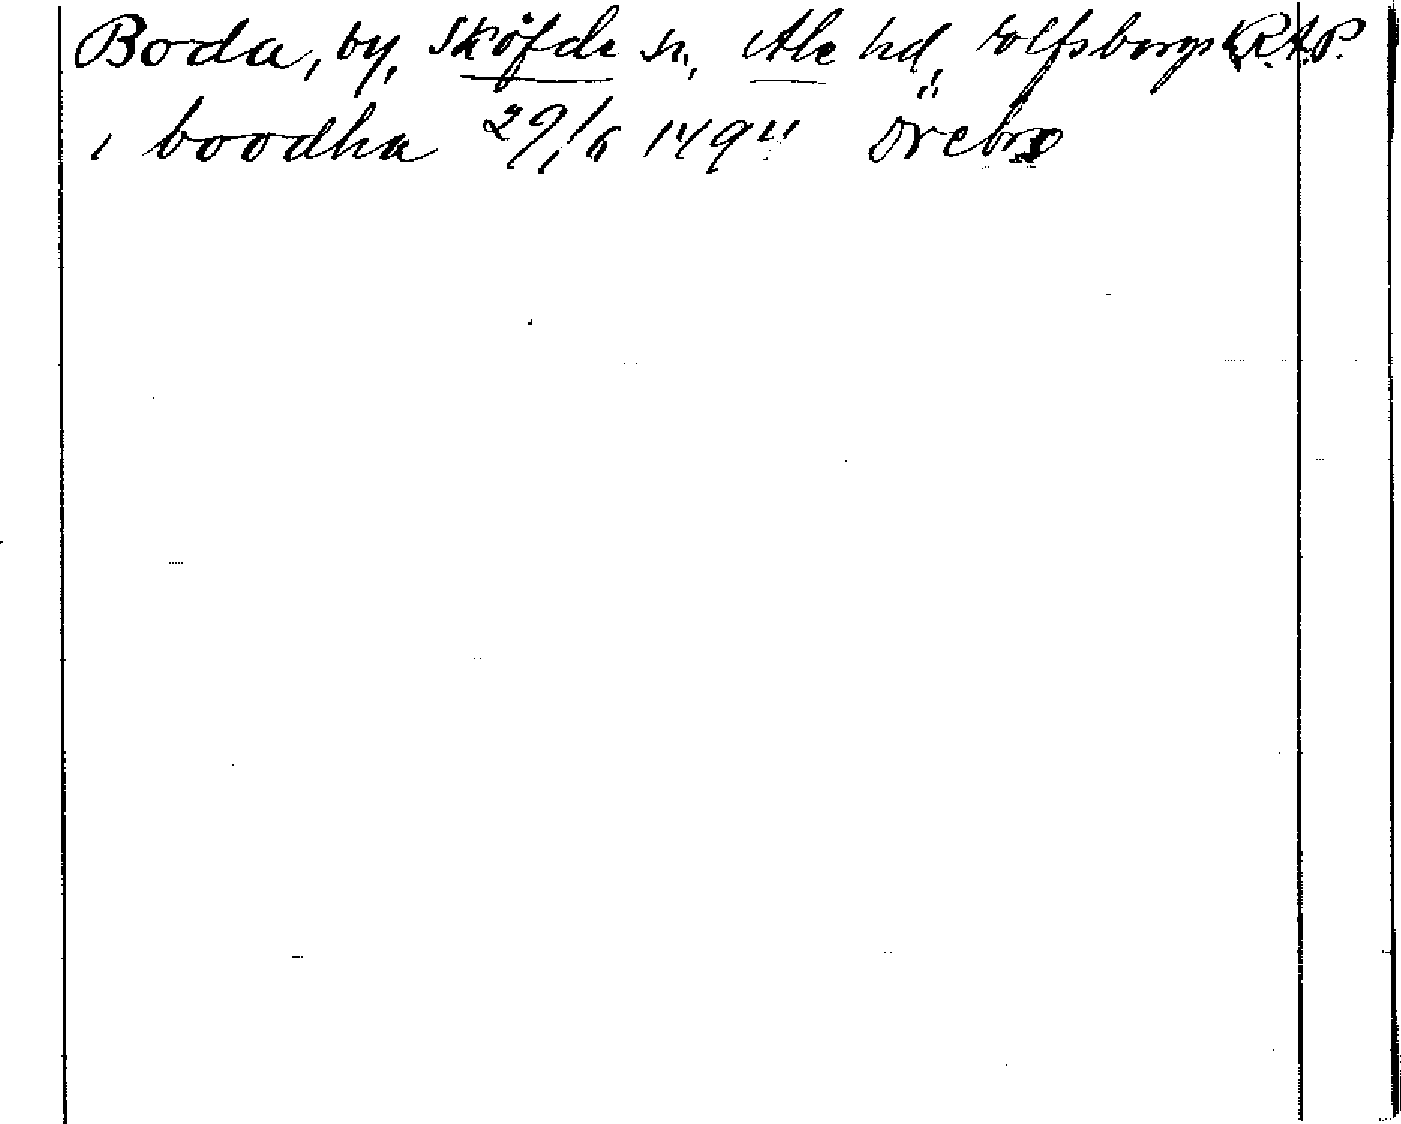 Boda, by, Sköfde sn, Ale hd, Elfsborgs l. R.A.P.
i boodha 29/6 1494 Örebro